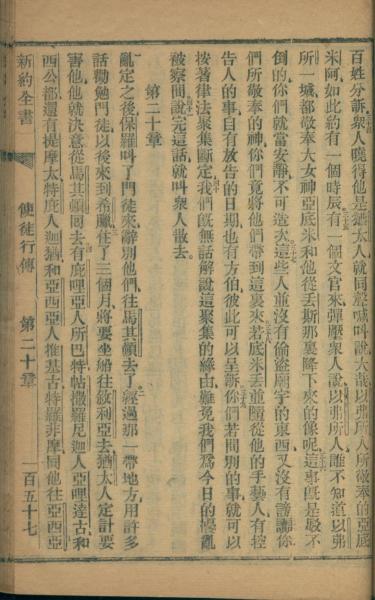 百姓分訴衆人曉得他是猶太人就同聲喊叫說大哉以弗所人所敬奉的亞底
米阿如此約有一個時辰有一個文官來彈壓衆人說以弗所人誰不知道以弗
所一城都敬奉大女神亞底米和他從丟斯那裏降下來的像呢這事旣是駁不
倒的你們就當安靜不可造次這些人並沒有偷盜廟宇的東西又沒有謗讟你
們所敬奉的神你們竟將他們帶到這裏來若底米丟並隨從他的手藝人有控
告人的事自有放告的日期也有方伯彼此可以呈訴你們若問別的事就可以
按著律法聚集斷定我們旣無話解說這聚集的緣由難免我們爲今日的擾亂
被察問說完這話就叫衆人散去
第二十章
亂定之後保羅叫了門徒來辭別他們往馬其頓去了經過那一帶地方用許多
話勸勉門徒以後來到希臘住了三個月將要坐船往敘利亞去猶太人定計要
害他他就決意從馬其頓回去有庇哩亞人所巴特帖撒羅尼迦人亞哩達古和
西公都還有提摩太特庇人迦猶和亞西亞人推基古特羅非摩同他往亞西亞
新約全書
使徒行傳
第二十章
一百五十七